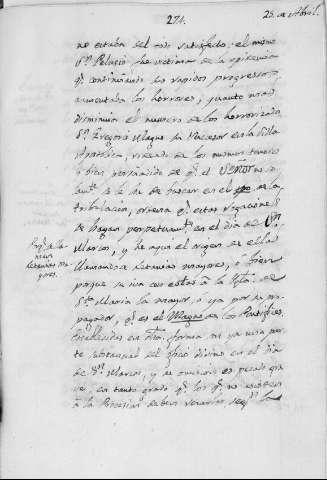 271.
25 de Abril.
no estaba del todo satisfecto: el mismo
Sn. Pelagio fue victima de la epidemia
qe. continuando sus rapidos progresos,
aumentaba los horrores, quanto mas
disminuia el numero de los horrorizados
Sn. Gregorio Magno su succesor en la Silla
Apostolica, de los mismos temores
y bien persuadido de qe. el Señor
se le ha de buscar en el de la
tribulacion, ordena qe. estas rogaciones
se hagan perpetuamte. en el dia de Sn.
Marcos, y he aqui el origen de ellas
Llamanse Letanias mayores, ó bien
porque su con estas á la Iga. de
Sta. Maria la mayor, ó ya por su
pagador, qe. es el Magno en los Pontifices.
Establecidas en dha. forma ya una par
te substancial del oficio divino en el dia
de Sn. Marcos, y su omision es pecado gra
ve, en tanto grado qe. los qe. no asisten
á la Procesion deben rezarlas segn. la
Letanias ma
yores.